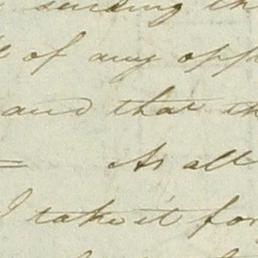 sending th
of any opp
and that th
= As all
I take it for